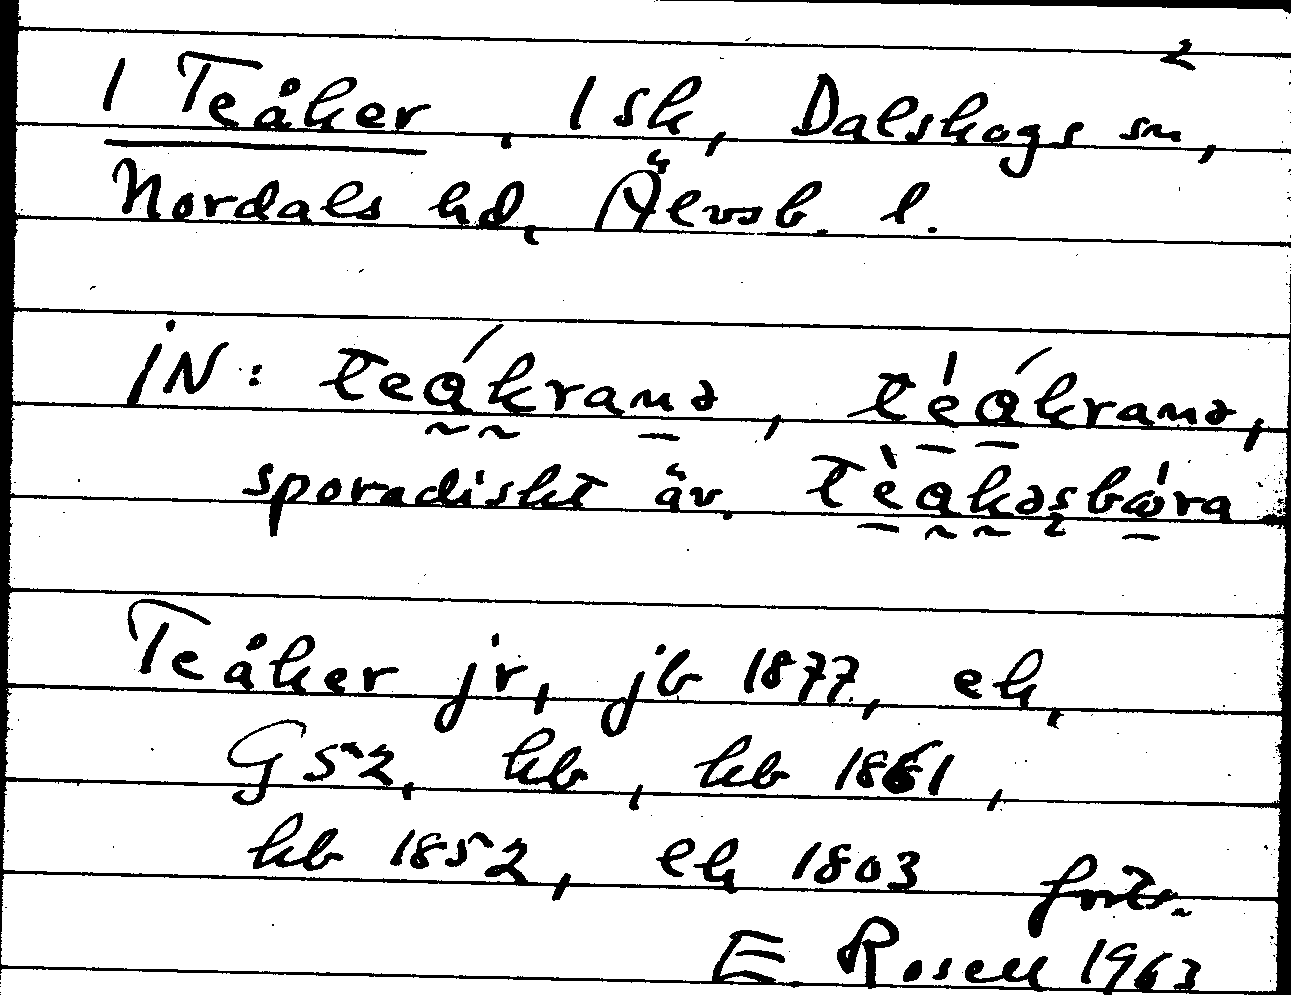 2
1 Teåker, 1 sk, Dalskogs sn,
Nordals hd, Älvsb. l.
iN: teákranə, te̍ákranə,
sporadiskt äv. tèakəsbω̍ra
Teåker jr, jb 1877, ek,
G52, kb, kb 1861,
kb 1852, ek 1803 forts.
E Rosell 1963